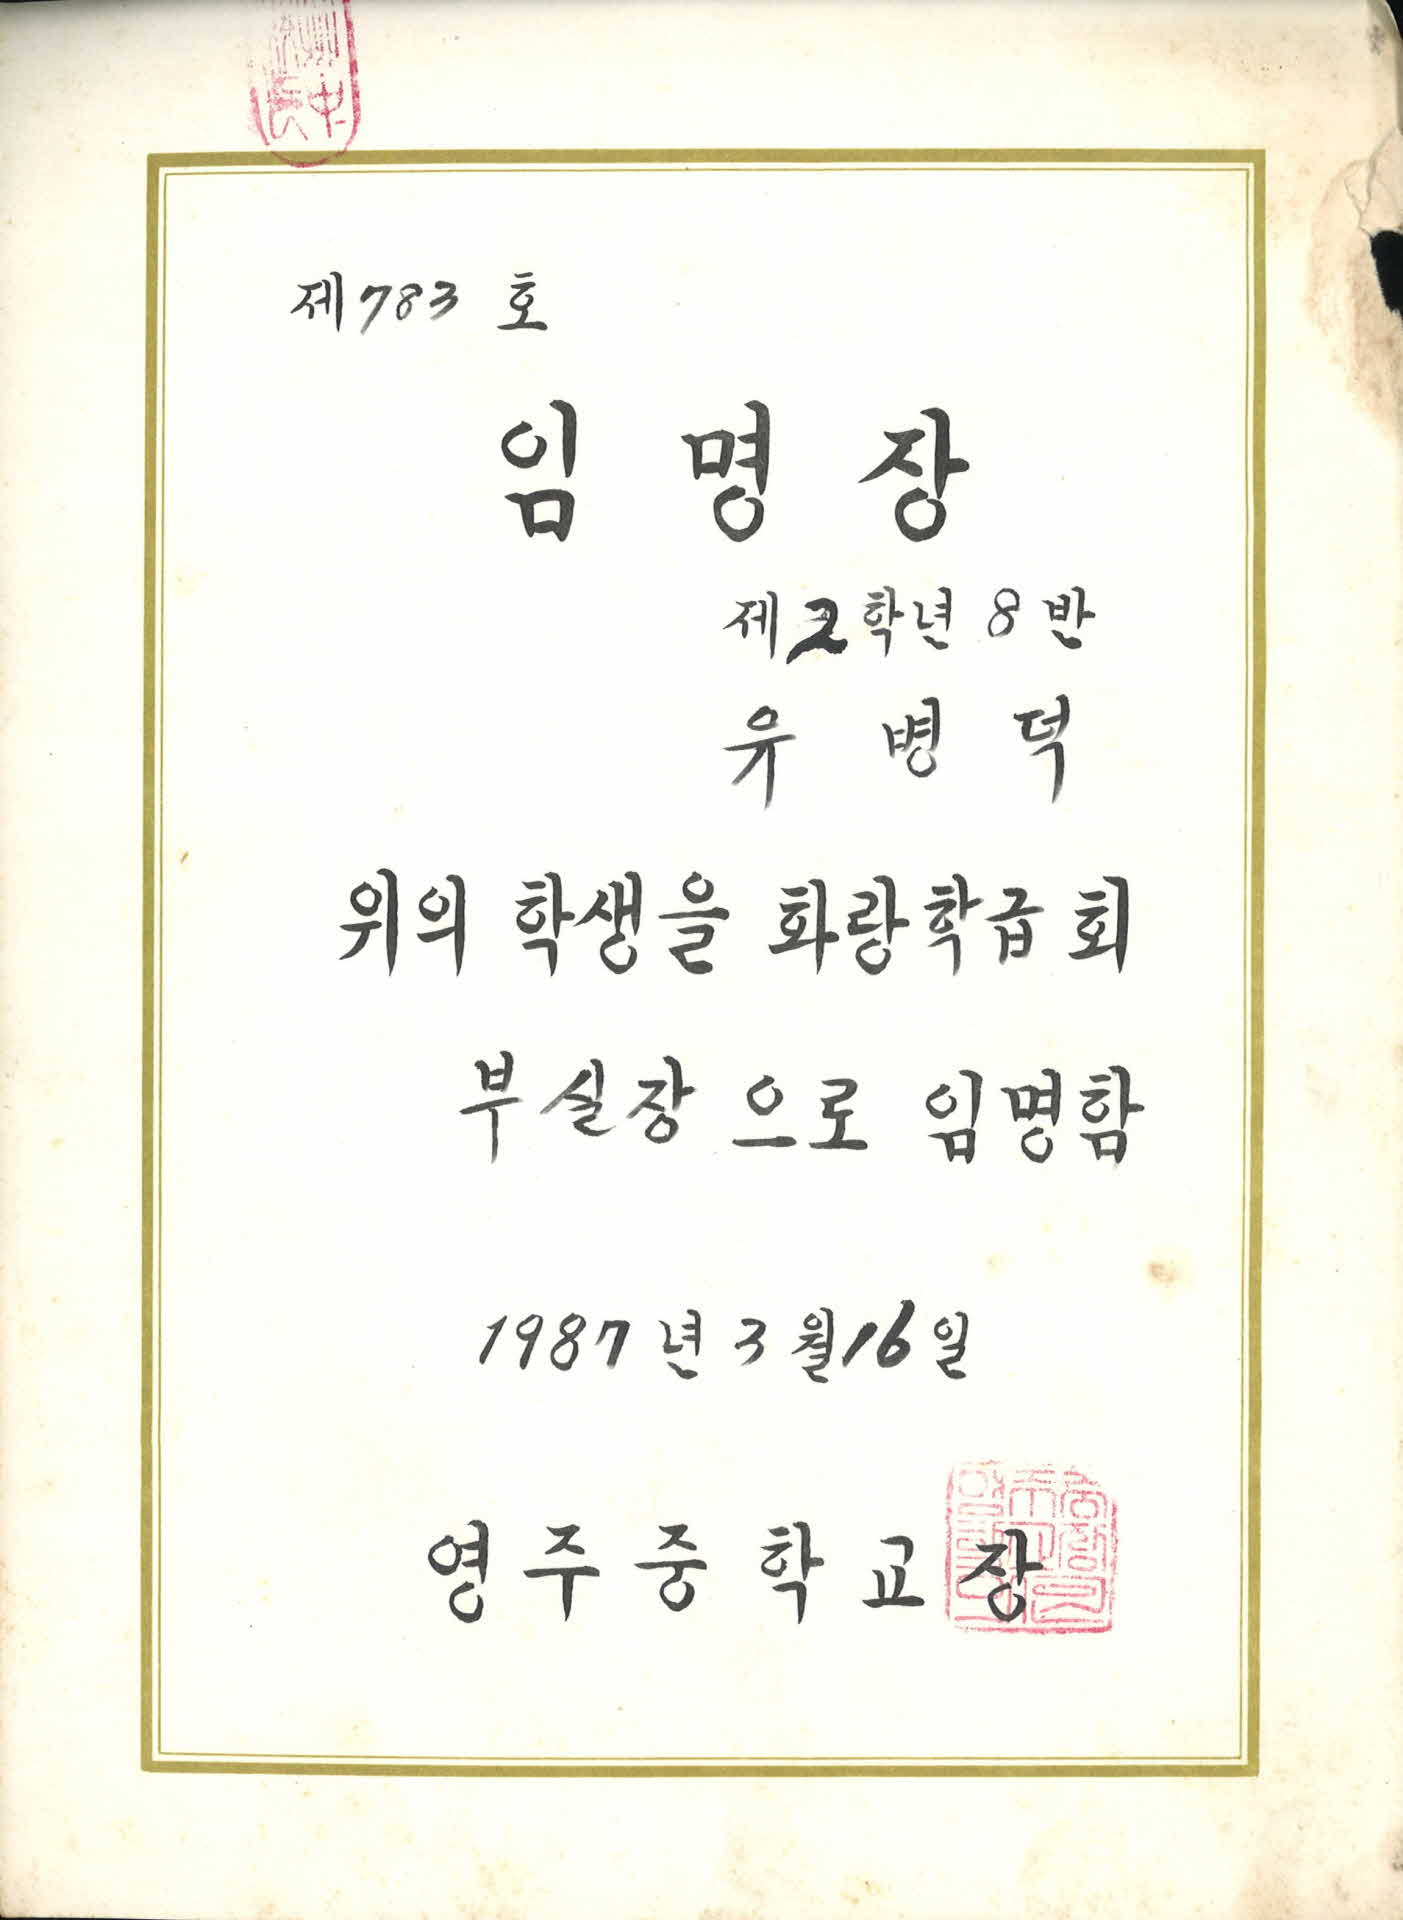 제783 호
임 명 장
제2학년 8 반
유 병 덕
위의 학생을 화랑학급회
부실장 으로 임명함
1987 년 3 월 16 일
영 주 중 학 교 장